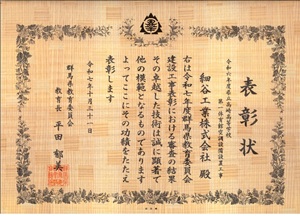 表彰状
令和六年度県立高崎高等学校
第一体育館空調設置工事
細谷工業株式会社 殿
右は令和七年度群馬県教育委員会
建設工事表彰における審査の結果
その卓越した技術は誠に顕著で
他の模範となるものであります
よってここにその功績をたたえ
表彰します
令和七年十月三十一日
群馬県教育委員会
教育長 平田 郁美